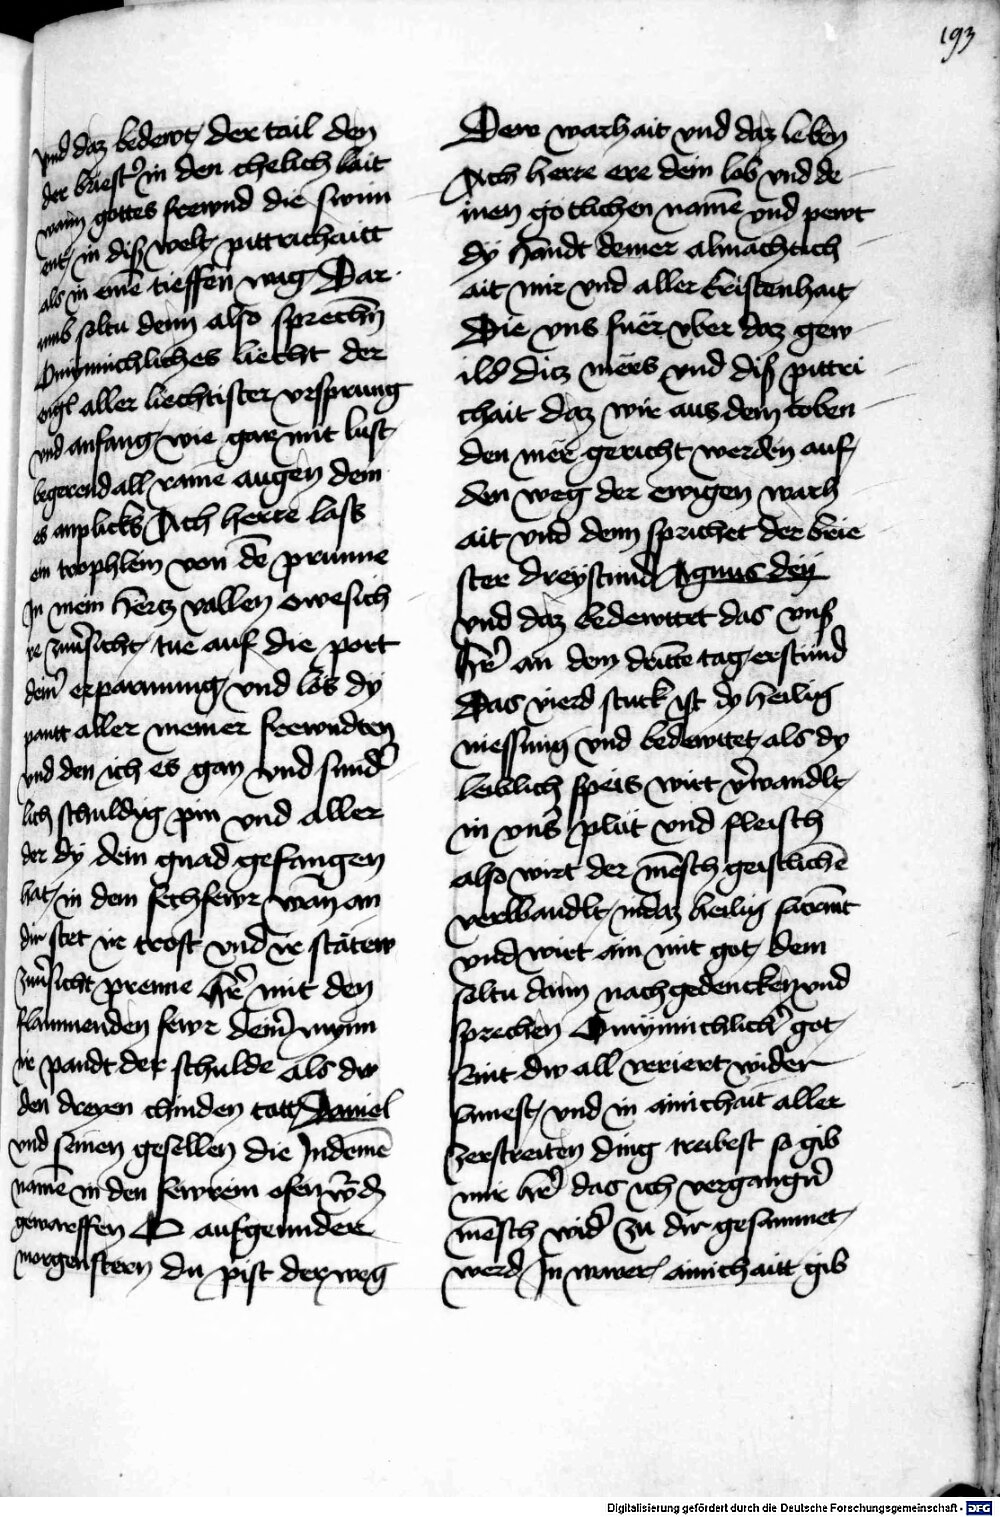 193
vnd daz bedewt der tail den
der briest' in den chelich lait
wann gottes frewnd die swim
ent in diß welt pittrichaitt
als in eine tieffen wag Dar
umb soltu denn also sprechn
O mynnichliches liecht der
engl aller liechtister vrsprung
vnd anfang wie gar mit lust
begerend all raine augen dein
es anplicks Ach herre lass
ein trophlein von de prunne
In mein hertz vallen owe sich
re zuu'sicht tue auf die port
dein' erparmung vnd lös dy
pantt aller meiner frewndten
vnd den ich es gan vnd sund'
lich schuldig pin vnd aller
der dy dein gnad gefangen
hat in dem fechfewr wan an
dir stet ir trost vnd ir stätew
zuu'sicht prenne he' mit den
flammenden fewr dein' mynn
ir pandt der schulde als dw
den dreyen chinden tatt Daniel
vnd seinen gesellen die In deine
name in den fewrein ofen w'd
geworffen O aufgeunder
morgenstern du pist der weg
Dew warhait vnd daz leben
Ach herre ere dein lob vnd de
inen gotlichen name vnd pewt
dy handt deiner almachtich
ait mir vnd aller kristenhait
Die vns fuer vber daz gew
ild dicz mers vnd diß pittri
chait daz wir aus dem toben
den mer gericht werden auf
den weg der ewigen warh
ait vnd denn sprichet der brie
ster dreystund Agnus dey
vnd daz bedewttet das vnß
he' an dem dritte tag erstund
Das vierd stuck ist dy heilig
niessung vnd bedewtet als dy
leiblich speis wirt v'wandlt
in vns' plüt vnd fleisch
also wirt der mesch geistliche
verbandlt in daz heilig sacrament
vnd wirt ain mit got dem
soltu dann nachgedencken vnd
sprechen O mynnichlich' got
Seint dw all veriert wider
samest vnd in ainichait aller
zerstreiten ding treibest so gib
mir he' das ich vergangn'
mesch wid' zu dir gesammet
werd In warer ainichaitt gib
Digitalisierung gefördert durch die Deutsche Forschungsgemeinschaft - DFG